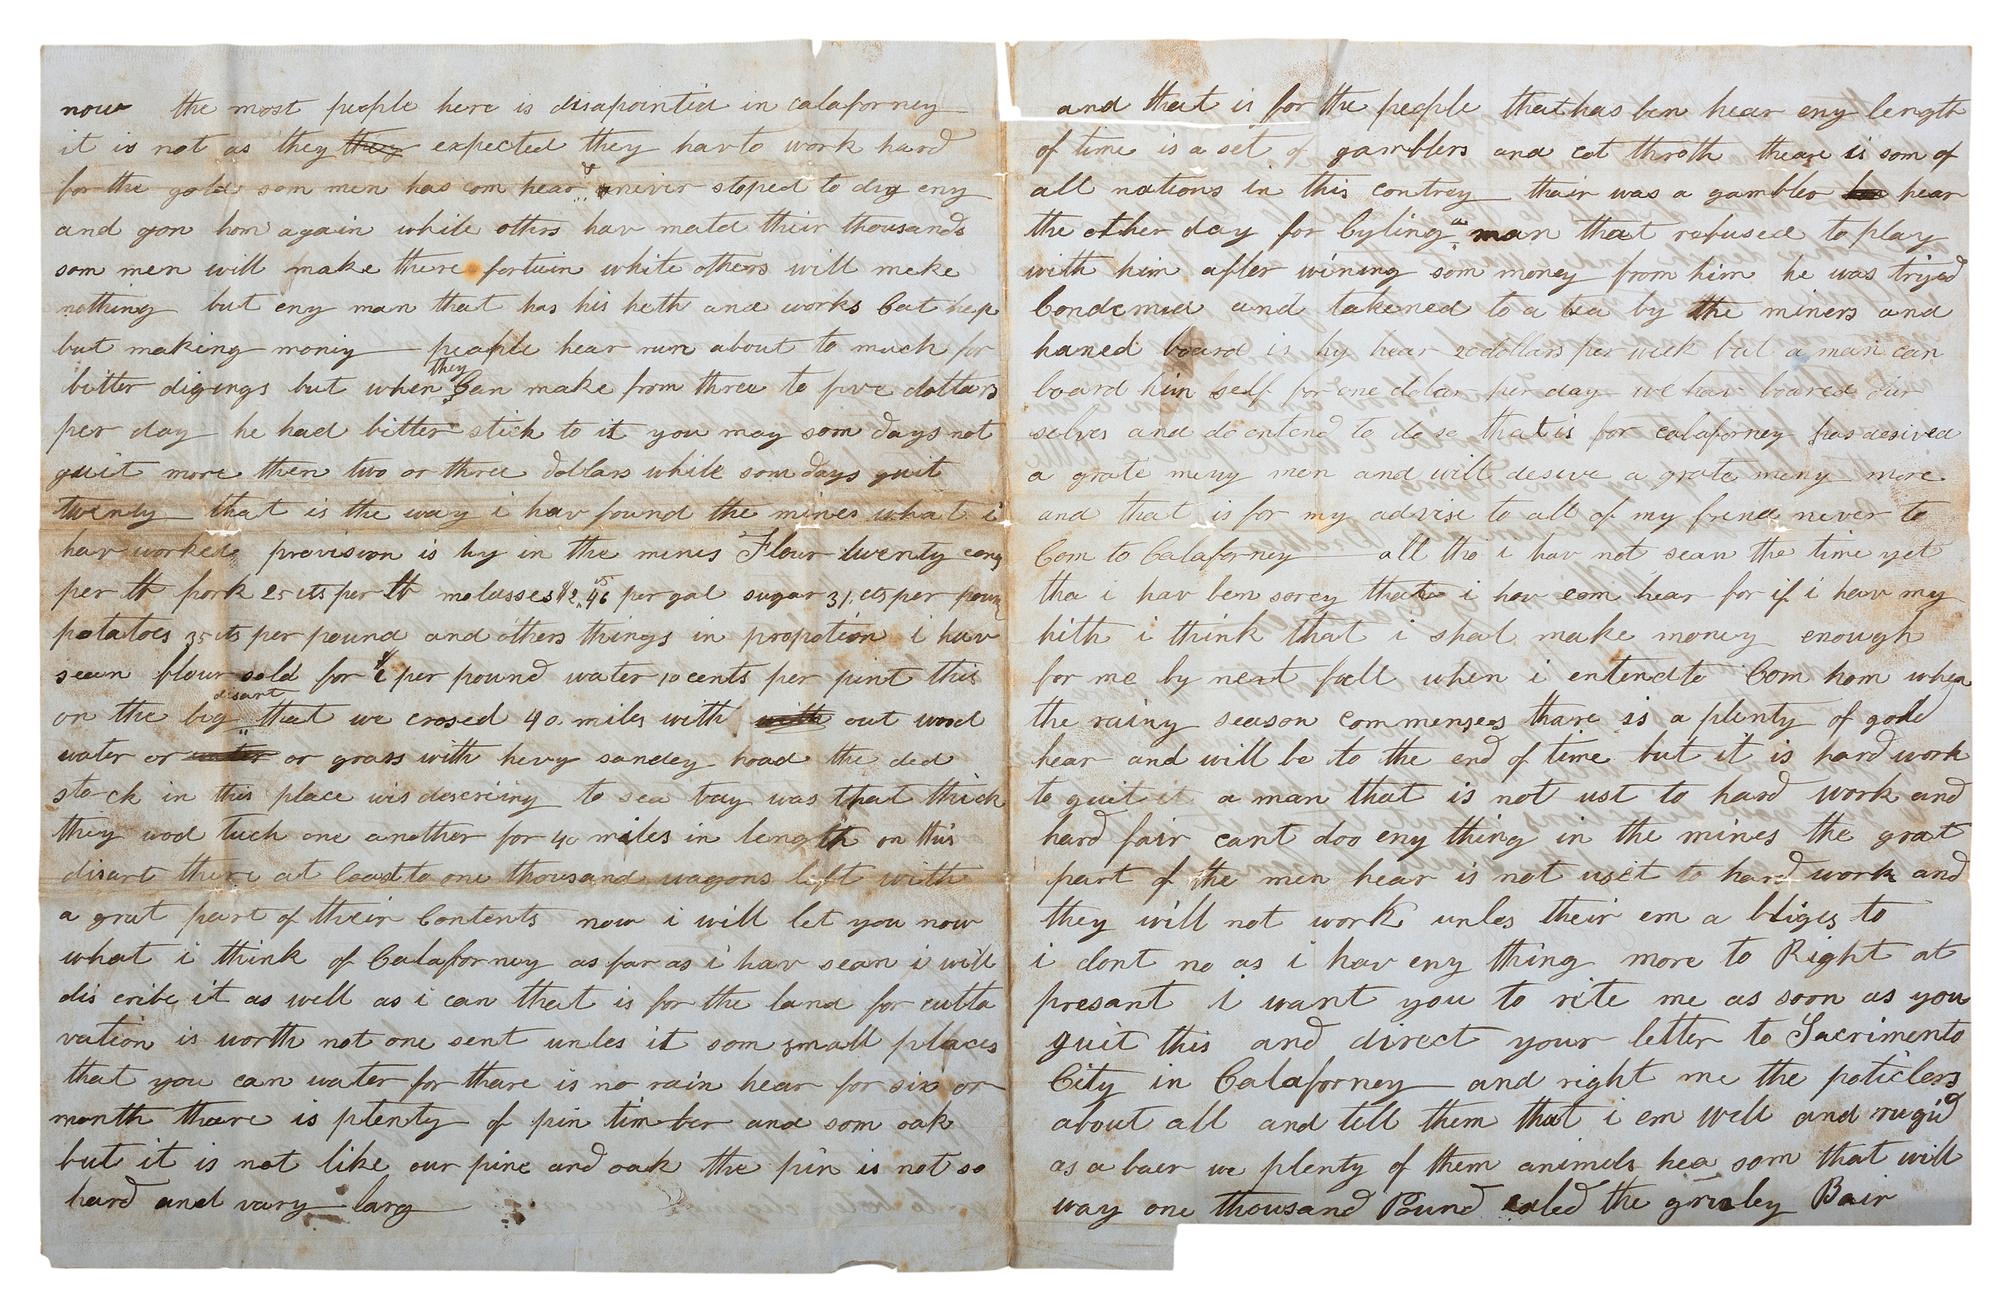 now the most people here is disapointed in calaforney
it is not as they they expected they hav to work hard
for the gold som men has com hear & never stoped to dig eny
and gon hom again while others hav mated their thousands
som men will make there fortuin while others will meke
nothing but eny man that has his helth and works Cat hep
but making moniy people hear run about to much for
bitter digings but when they Can make from three to five dollars
per day he had bitter stick to it you may som days not
guit more then two or three dollars while som days guit
twenty that is the way i hav found the mines what i
hav worked provision is hy in the mines Flour twenty cens
per lb pork 25 cts per lb molasses $2.46 per gal sugar 31 cts per poun
potatoes 35 cts per pound and others things in propotion i hav
seean flour sold for $1 per pound water 10 cents per pint this
on the big disart that we crosed 40 miles with with out wood
water or water or grass with hevy sandey hoad the ded
stock in this place wis descriing to sea tay was that thick
they wod tuch one another for 40 miles in length on this
disart there at least to one thousand wagons left with
a grat part of their Contents now i will let you now
what i think of Calaforney as far as i hav sean i will
dis cribe it as well as i can that is for the land for cutta
vation is worth not one sent unles it som small places
that you can water for thare is no rain hear for six or
month theare is plenty of pin timber and som oak
but it is not like our pine and oak the pin is not so
hard and vary larg
and that is for the people that has ben hear eny length
of time is a set of gamblers and cot throth theare is som of
all nations in this contrey thair was a gambler hear
the other day for cyling a man that refused to play
with him after wining som money from him he was tryed
Condemied and takened to a tea by the miners and
haned board is hy hear 20 dollars per week but a man can
board him self for one dolar per day we hav boared our
selves and do entend to do so that is for calaforney has desived
a grate meny men and will desive a grate meny more
and that is for my advise to all of my frend never to
Com to Calaforney all tho i hav not sean the time yet
tha i hav ben sorey that i hav com hear for if i hav my
hith i think that i shal make money enough
for me by next fall when i entend to Com hom when
the rainy season commenses thare is a plenty of gold
hear and will be to the end of time but it is hard work
to guit it a man that is not ust to hard work and
hard fair cant doo eny thing in the mines the grat
part of the men hear is not uset to hard work and
they will not work unles their em a bliges to
i dont no as i hav eny thing more to Right at
presant i want you to rite me as soon as you
guit this and direct your letter to Sacrimento
City in Calaforney and right me the paticlers
about all and tell them that i em well and rugid
as a bair we plenty of them animels hea som that will
way one thousand Pound caled the grizley Bair